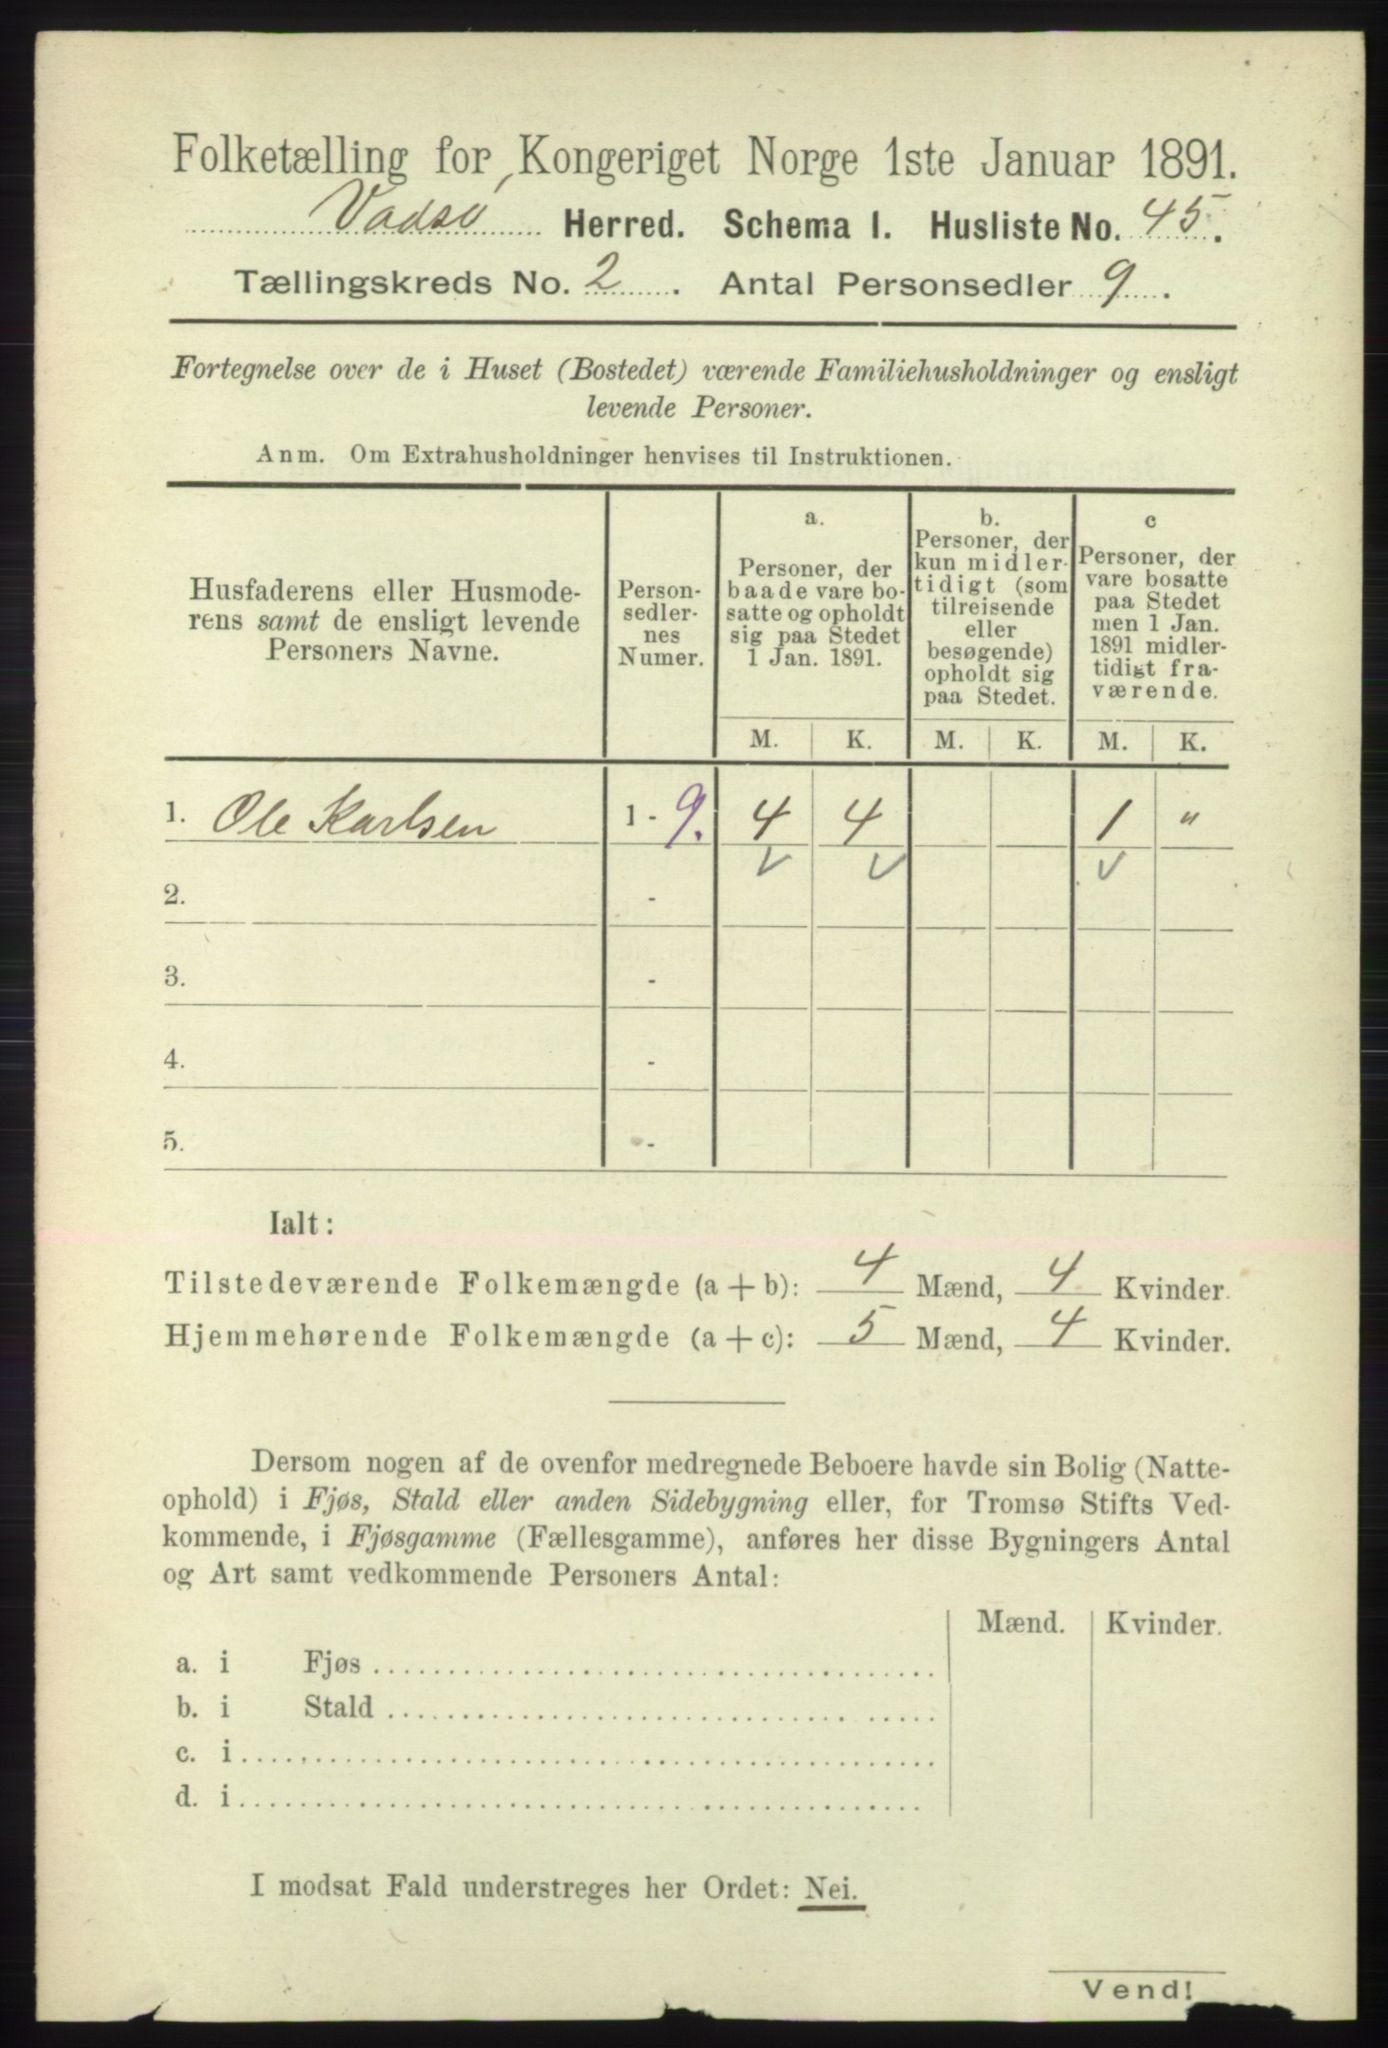 Folketælling for Kongeriget Norge 1ste Januar 1891.
Vadsø Herred. Schema I. Husliste No. 45.
Tællingskreds No. 2. Antal Personsedler 9.
Fortegnelse over de i Huset (Bostedet) værende Familiehusholdninger og ensligt
levende Personer.
Anm. Om Extrahusholdninger henvises til Instruktionen.
Husfaderens eller Husmode-
rens samt de ensligt levende
Personers Navne.
Person-
sedler-
nes
Numer.
a.
Personer, der
baade vare bo-
satte og opholdt
sig paa Stedet
1 Jan. 1891.
b.
Personer, der
kun midler-
tidigt (som
tilreisende
eller
besøgende)
opholdt sig
paa Stedet.
c
Personer, der
vare bosatte
paa Stedet
men 1 Jan.
1891 midler-
tidigt fra-
værende.
M. K. M. K. M. K.
1. Ole Karlsen 1 - 9. 4 4 1 "
2. -
3. -
4. -
5. -
Ialt:
Tilstedeværende Folkemængde (a + b): 4 Mænd, 4 Kvinder.
Hjemmehørende Folkemængde (a + c): 5 Mænd, 4 Kvinder.
Dersom nogen af de ovenfor medregnede Beboere havde sin Bolig (Natte-
ophold) i Fjøs, Stald eller anden Sidebygning eller, for Tromsø Stifts Ved-
kommende, i Fjøsgamme (Fællesgamme), anføres her disse Bygningers Antal
og Art samt vedkommende Personers Antal:
Mænd. Kvinder.
a. i Fjøs
b. i Stald
c. i
d. i
I modsat Fald understreges her Ordet: Nei.
Vend!